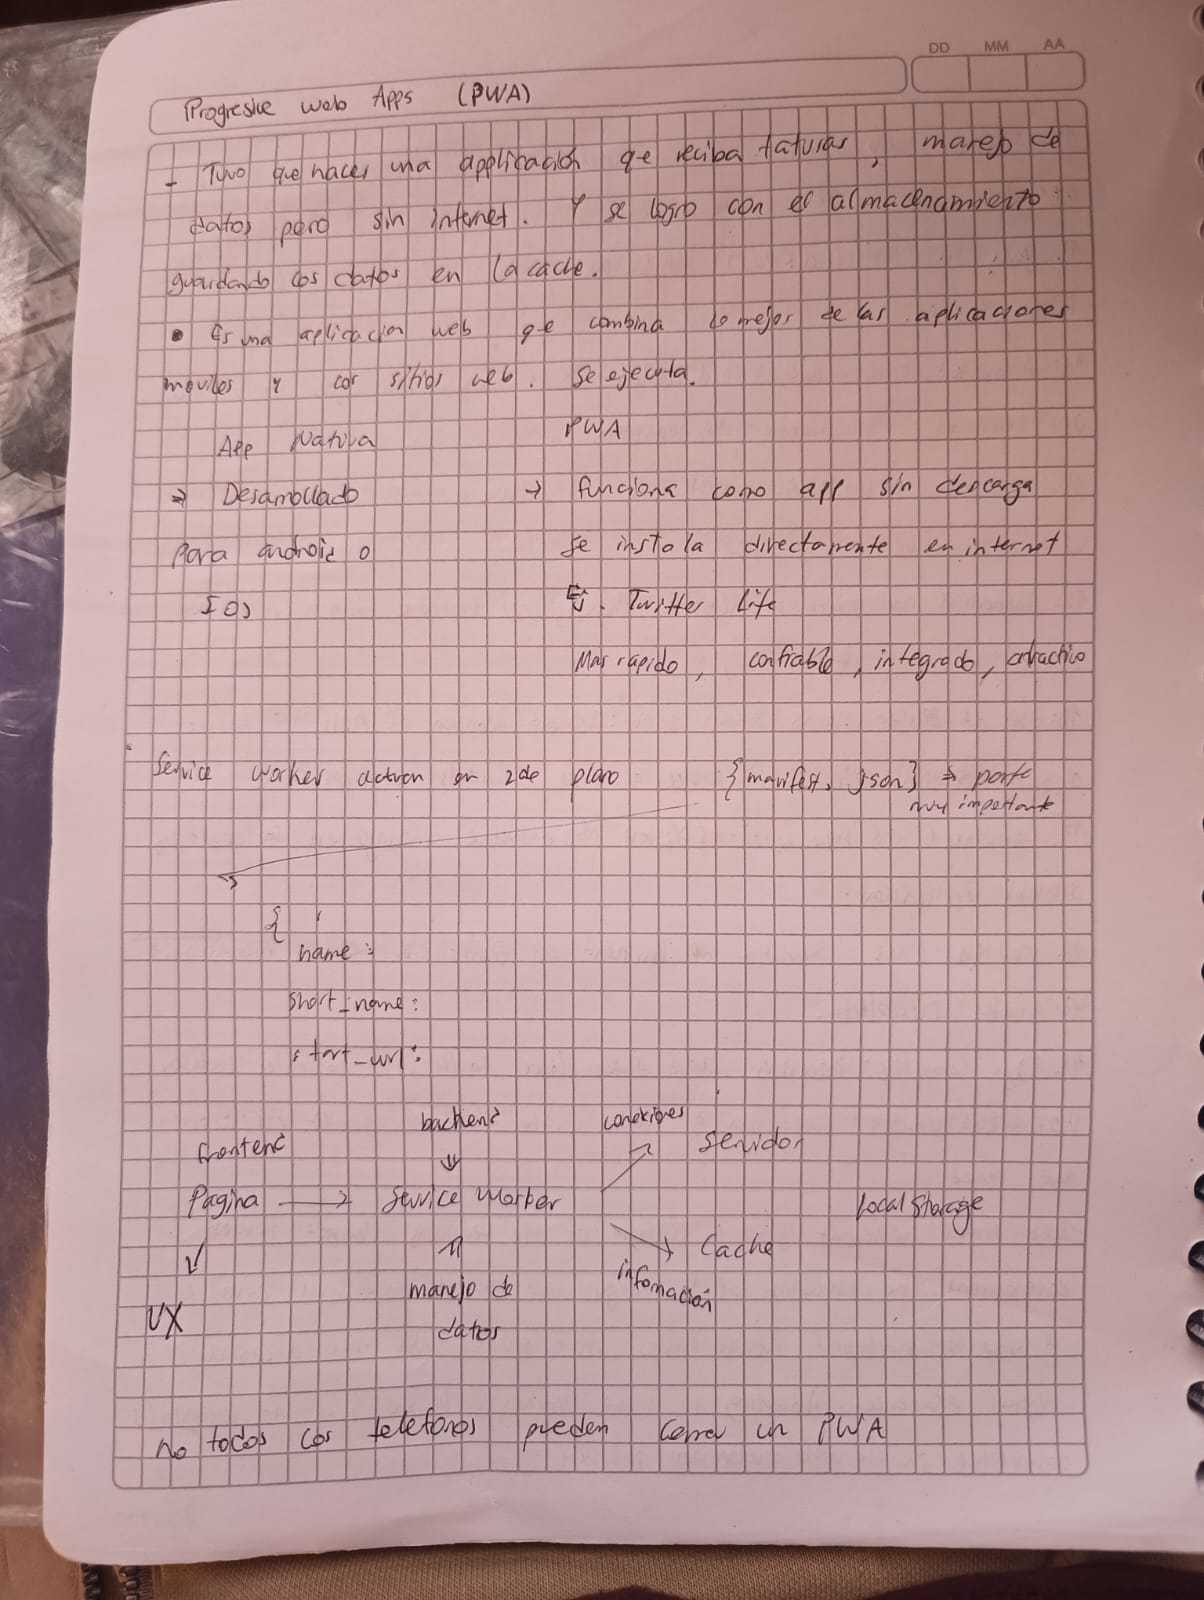 DD MM AA
Progresive web Apps (PWA)
- Tuvo que hacer una applicación que reciba faturas, manejo de
datos pero sin internet. Y se logro con el almacenamiento
guardando los datos en la cache.
• Es una aplicacion web que combina lo mejor de las aplicaciones
moviles y los sitios web. Se ejecuta.
App Nativa PWA
→ Desarrollado → funciona como app sin descarga
Para android o Se instala directamente en internet
IOS Ej. Twitter Life
Mas rapido, confiable, integrado, atractivo
Service worker actuan en 2do plano {manifest.json} → parte
muy importante
{
name:
short_name:
start_url:
backend conexiones
frontend Servidor
Pagina → Service Worker Local Storage
Cache
manejo de información
UX datos
No todos los telefonos pueden correr un PWA